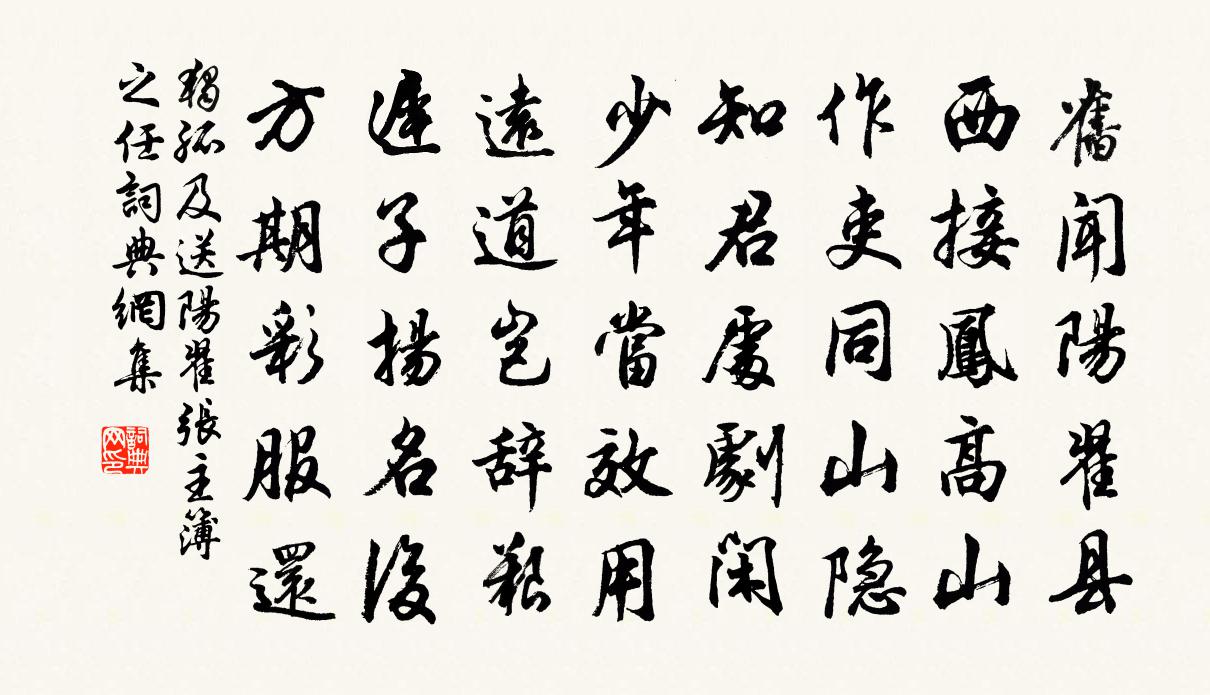 舊闻陽翟县
西接鳳高山
作吏同山隐
知君處劇闲
少年當效用
遠道岂辞艱
遲子揚名後
方期彩服還
獨孤及送陽翟張主簿
之任詞典網集
詞典
网印